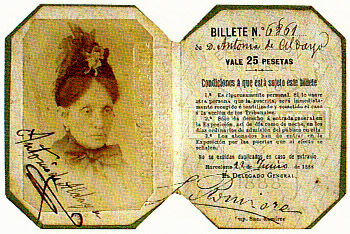 BILLETE N.º 6261
de D. Antonia de
VALE 25 PESETAS
Condiciones á que está sujeto este billete
1.ª Es rigurosamente personal. Si lo usare
otra persona que la suscrita, será inmediatamente
recogido é inutilizado y sometido el caso
á la acción de los Tribunales.
2.ª Sólo da derecho á entrada general en
la Exposición, así de día como de noche, en los
días ordinarios de admisión del público en ella.
3.ª Los abonados han de entrar en la
Exposición por las puertas que al efecto se
señalen.
No se expiden duplicados en caso de extravío.
Barcelona 22 Junio de 1888
EL DELEGADO GENERAL
Imp. Suc. Ramirez
Antonia de